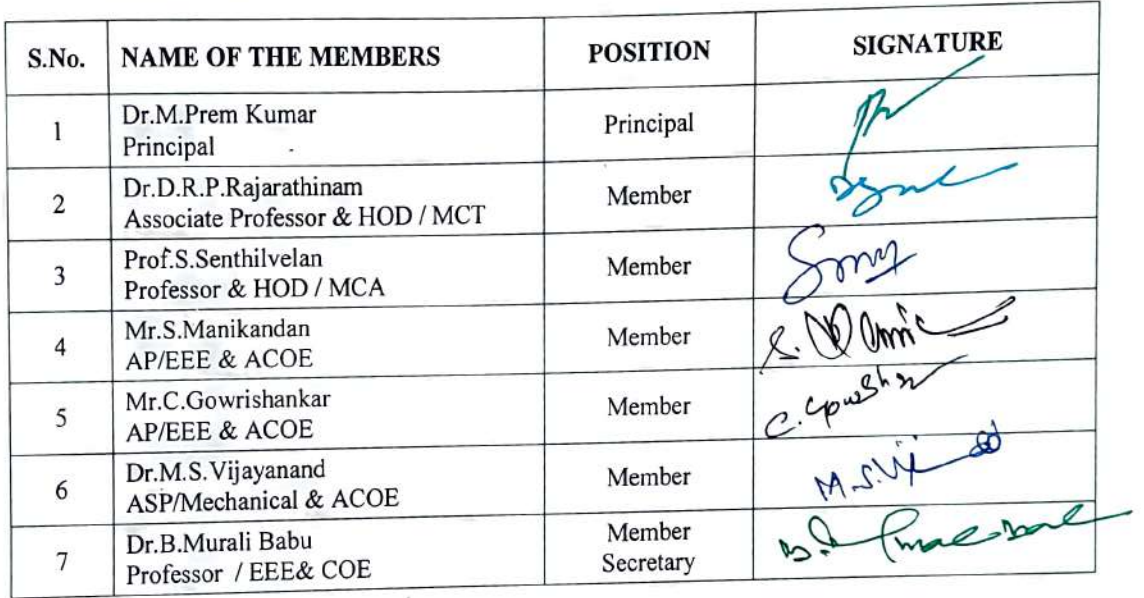 S.No. NAME OF THE MEMBERS POSITION SIGNATURE
1 Dr.M.Prem Kumar
Principal Principal
2 Dr.D.R.P.Rajarathinam
Associate Professor & HOD / MCT Member
3 Prof.S.Senthilvelan
Professor & HOD / MCA Member
4 Mr.S.Manikandan
AP/EEE & ACOE Member
5 Mr.C.Gowrishankar
AP/EEE & ACOE Member
6 Dr.M.S.Vijayanand
ASP/Mechanical & ACOE Member
7 Dr.B.Murali Babu
Professor / EEE& COE Member
Secretary